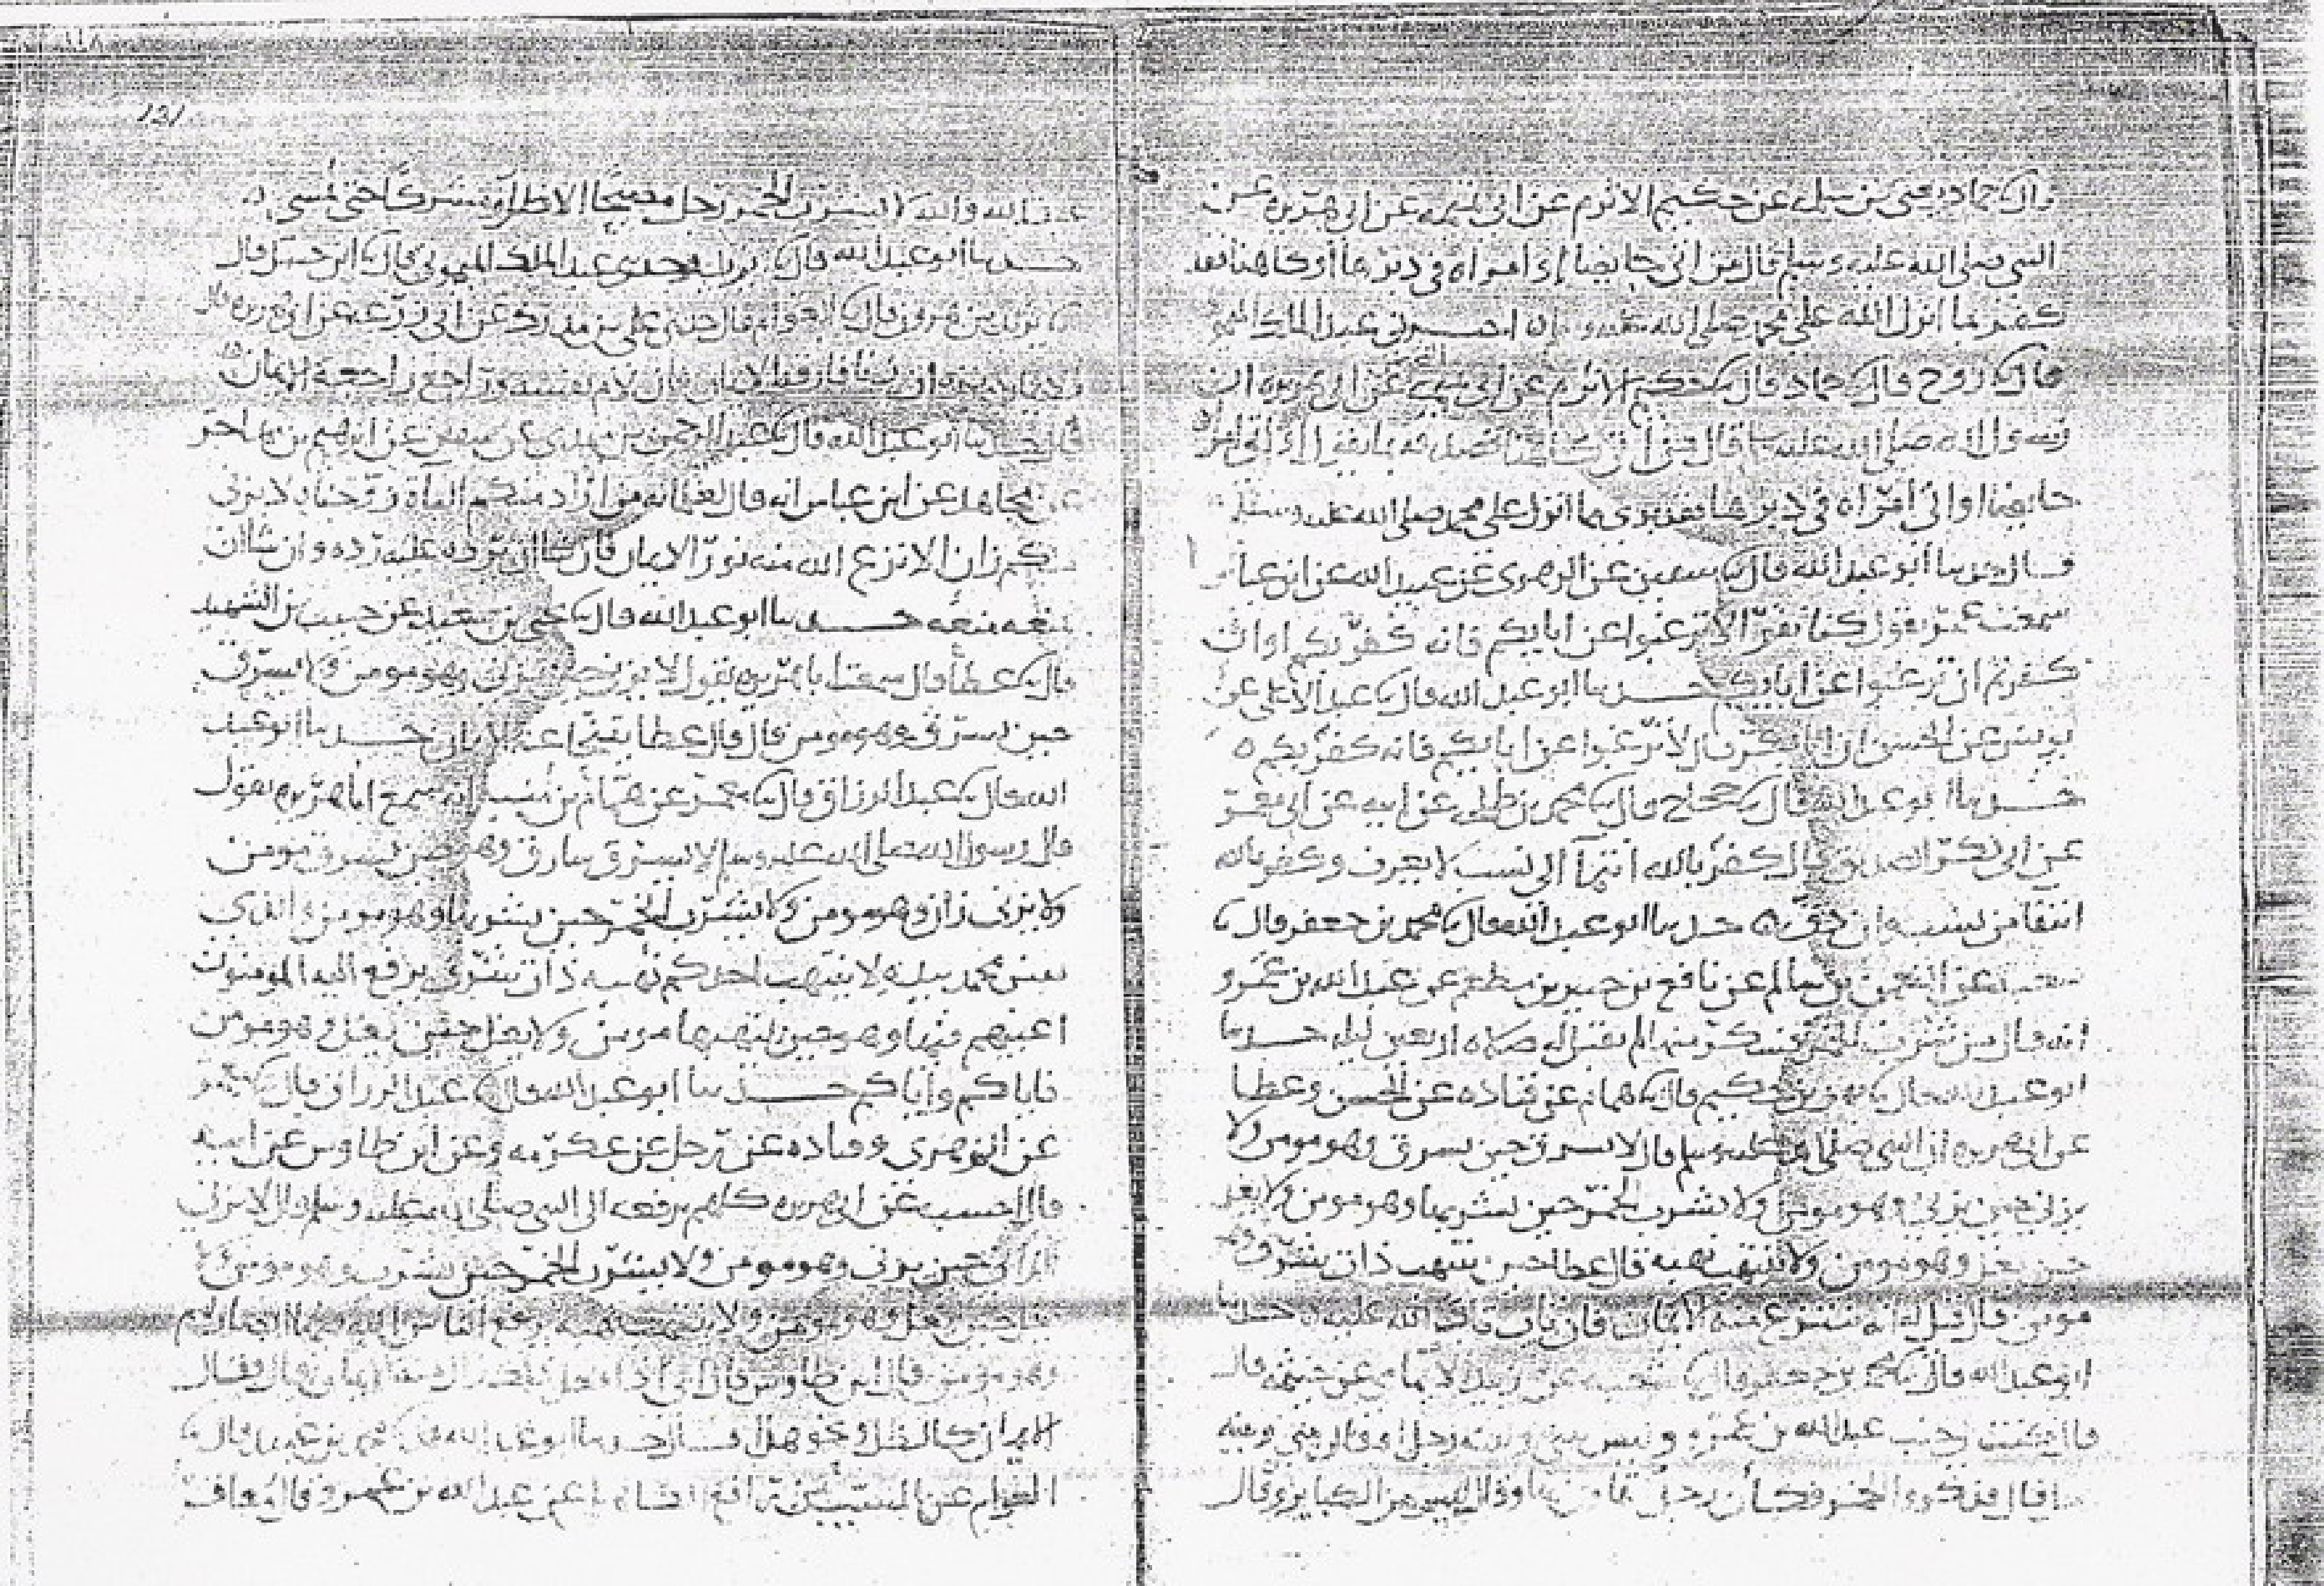 قال حماد يعني بن سلمه عن حكيم الاثرم عن ابي تميمه عن ابي هريره عن
النبي صلى الله عليه وسلم قال من اتى حايضا او امراه في دبرها او كاهنا فقد
كفر بما انزل الله على محمد صلى الله عليه عبد الملك
قال روح قال حماد قال حكيم الاثرم عن ابي تميمه عن ابي هريره ان
رسول الله صلى الله عليه قال من اتى كاهنا فصدقه بما يقول او اتى امراه
حايضا او اتى امراه في دبرها فقد برئ مما انزل على محمد صلى الله عليه وسلم
قال حدثنا ابو عبد الله قال سفين عن الزهري عن عبيد الله عن ابن عباس
سمعت عمر يقول كنا نقرا لا ترغبوا عن ابايكم فانه كفر بكم او ان
كفر بكم ان ترغبوا عن ابايكم حدثنا ابو عبد الله قال عبد الاعلى عن
يونس عن الحسن ان ابا بكر قال لا ترغبوا عن ابايكم فانه كفر بكم
حدثنا ابو عبد الله قال حجاج قال محمد بن طلحه عن ابيه عن ابي معمر
عن ابي بكر الصديق قال كفر بالله انتما الى نسب لا يعرف وكفر بالله
انتفا من نسب وان دق حدثنا ابو عبد الله قال محمد بن جعفر قال
شعبه عن النعمن بن سالم عن نافع بن جبير بن مطعم عن عبد الله بن عمرو
انه قال من شرب الخمر فسكر منها لم تقبل له صلاه اربعين ليله حدثنا
ابو عبد الله قال بهز بن حكيم قال همام عن قتاده عن الحسن وعطا
عن ابي هريره ان النبي صلى الله عليه وسلم قال لا يسرق حين يسرق وهو مومن ولا
يزني حين يزني وهو مومن ولا يشرب الخمر حين يشربها وهو مومن ولا يغل
حين يغل وهو مومن ولا ينتهب نهبه قال عطا حين ينتهب ذات شرف وهو
مومن قال قيل له انه ينتزع منه الايمان فان تاب تاب الله عليه حدثنا
ابو عبد الله قال محمد بن جعفر قال شعبه عن زبيد الايامي عن خيثمه قال
قال كنت جنب عبد الله بن عمرو وليس بيني وبينه رجل او قال بيني وبينه
قال فذكروا الخمر فكان رجل من الكباير وقال
عبد الله والله لا يشرب الخمر رجل مصبحا الا ظل مشركا حتى يمسي
حدثنا ابو عبد الله قال عبد الملك الميموني قال ابن حنبل قال
يزيد بن هرون قال العوام قال حدثني علي بن مدرك عن ابي زرعه عن ابي هريره قال
فارقه الايمان فان لام نفسه وراجع راجعه الايمان
قال حدثنا ابو عبد الله قال عبد الرحمن بن مهدي عن سفين عن ابرهيم بن مهاجر
عن مجاهد عن ابن عباس انه قال لغلمانه من اراد منكم الباه زوجناه لا يزني
منكم زان الا نزع الله منه نور الايمان فان شا ان يرده عليه رده وان شا ان
يمنعه منعه حدثنا ابو عبد الله قال يحيى بن سعيد عن حبيب بن الشهيد
قال عطا قال سمعت ابا هريره يقول لا يزني حين يزني وهو مومن ولا يسرق
حين يسرق وهو مومن قال قال عطا يتنحا عنه الايمان حدثنا ابو عبد
الله قال عبد الرزاق قال معمر عن همام بن منبه انه سمع ابا هريره يقول
قال رسول الله صلى الله عليه وسلم لا يسرق سارق وهو حين يسرق مومن
ولا يزني زان وهو مومن ولا يشرب الخمر حين يشربها وهو مومن والذي
نفس محمد بيده لا ينتهب احدكم نهبه ذات شرف يرفع اليه المومنون
اعينهم فيها وهو حين ينتهبها مومن ولا يغل حين يغل وهو مومن
فاياكم واياكم حدثنا ابو عبد الله قال عبد الرزاق قال معمر
عن الزهري وقتاده عن رجل عن عكرمه وعن ابن طاوس عن ابيه
قال احسبه عن ابي هريره كلهم يرفعه الى النبي صلى الله عليه وسلم قال لا يزني
الزاني حين يزني وهو مومن ولا يشرب الخمر حين يشرب وهو مومن ولا
يغل حين يغل وهو مومن ولا ينتهب نهبه يرفع الناس اليه فيها ابصارهم
وهو مومن قال ابن طاوس قال ابي اذا فعل ذلك الايمان قال وقال
الايمان كالظل ونحو هذا قال حدثنا ابو عبد الله قال محمد بن عبيد قال
العوام عن المسيب بن رافع عن عبد الله بن عمرو قال